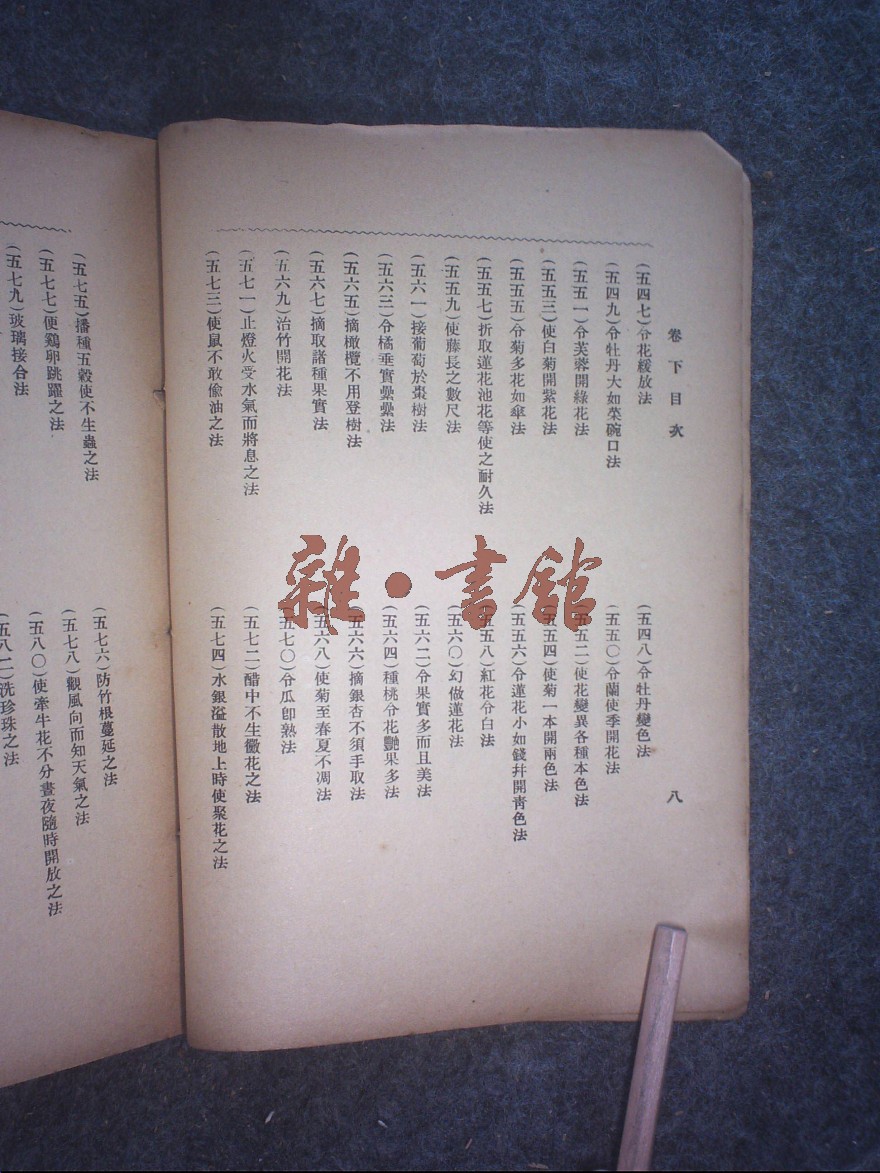 卷下目次
八
(五四七)令花緩放法
(五四八)令牡丹變色法
(五四九)令牡丹大如菜碗口法
(五五〇)令蘭使季開花法
(五五一)令芙蓉開綠花法
(五五二)使花變異各種本色法
(五五三)使白菊開紫花法
(五五四)使菊一本開兩色法
(五五五)令菊多花如傘法
(五五六)令蓮花小如錢幷開靑色法
(五五七)折取蓮花池花等使之耐久法
(五五八)紅花令白法
(五五九)使藤長之數尺法
(五六〇)幻做蓮花法
(五六一)接葡萄於棗樹法
(五六二)令果實多而且美法
(五六三)令橘垂實纍纍法
(五六四)種桃令花艷果多法
(五六五)摘橄欖不用登樹法
(五六六)摘銀杏不須手取法
(五六七)摘取諸種果實法
(五六八)使菊至春夏不凋法
(五六九)治竹開花法
(五七〇)令瓜卽熟法
(五七一)止燈火受水氣而將息之法
(五七二)醋中不生黴花之法
(五七三)使鼠不敢偷油之法
(五七四)水銀溢散地上時使聚花之法
(五七五)播種五穀使不生蟲之法
(五七六)防竹根蔓延之法
(五七七)便鷄卵跳躍之法
(五七八)觀風向而知天氣之法
(五七九)玻璃接合法
(五八〇)使牽牛花不分晝夜隨時開放之法
(五八二)洗珍珠之法
雜·書館